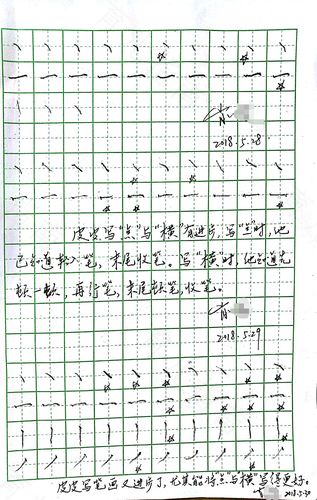 2018.5.28
皮皮写"点"与"横"有进步,写"点"时,他
已知道轻入笔,末尾收笔。写"横"时,他知道先
顿一顿,再行笔,末尾顿笔,收笔。
2018.5.29
皮皮写笔画又进步了,尤其能将"点"与"横"写得更好。
2018.5.30